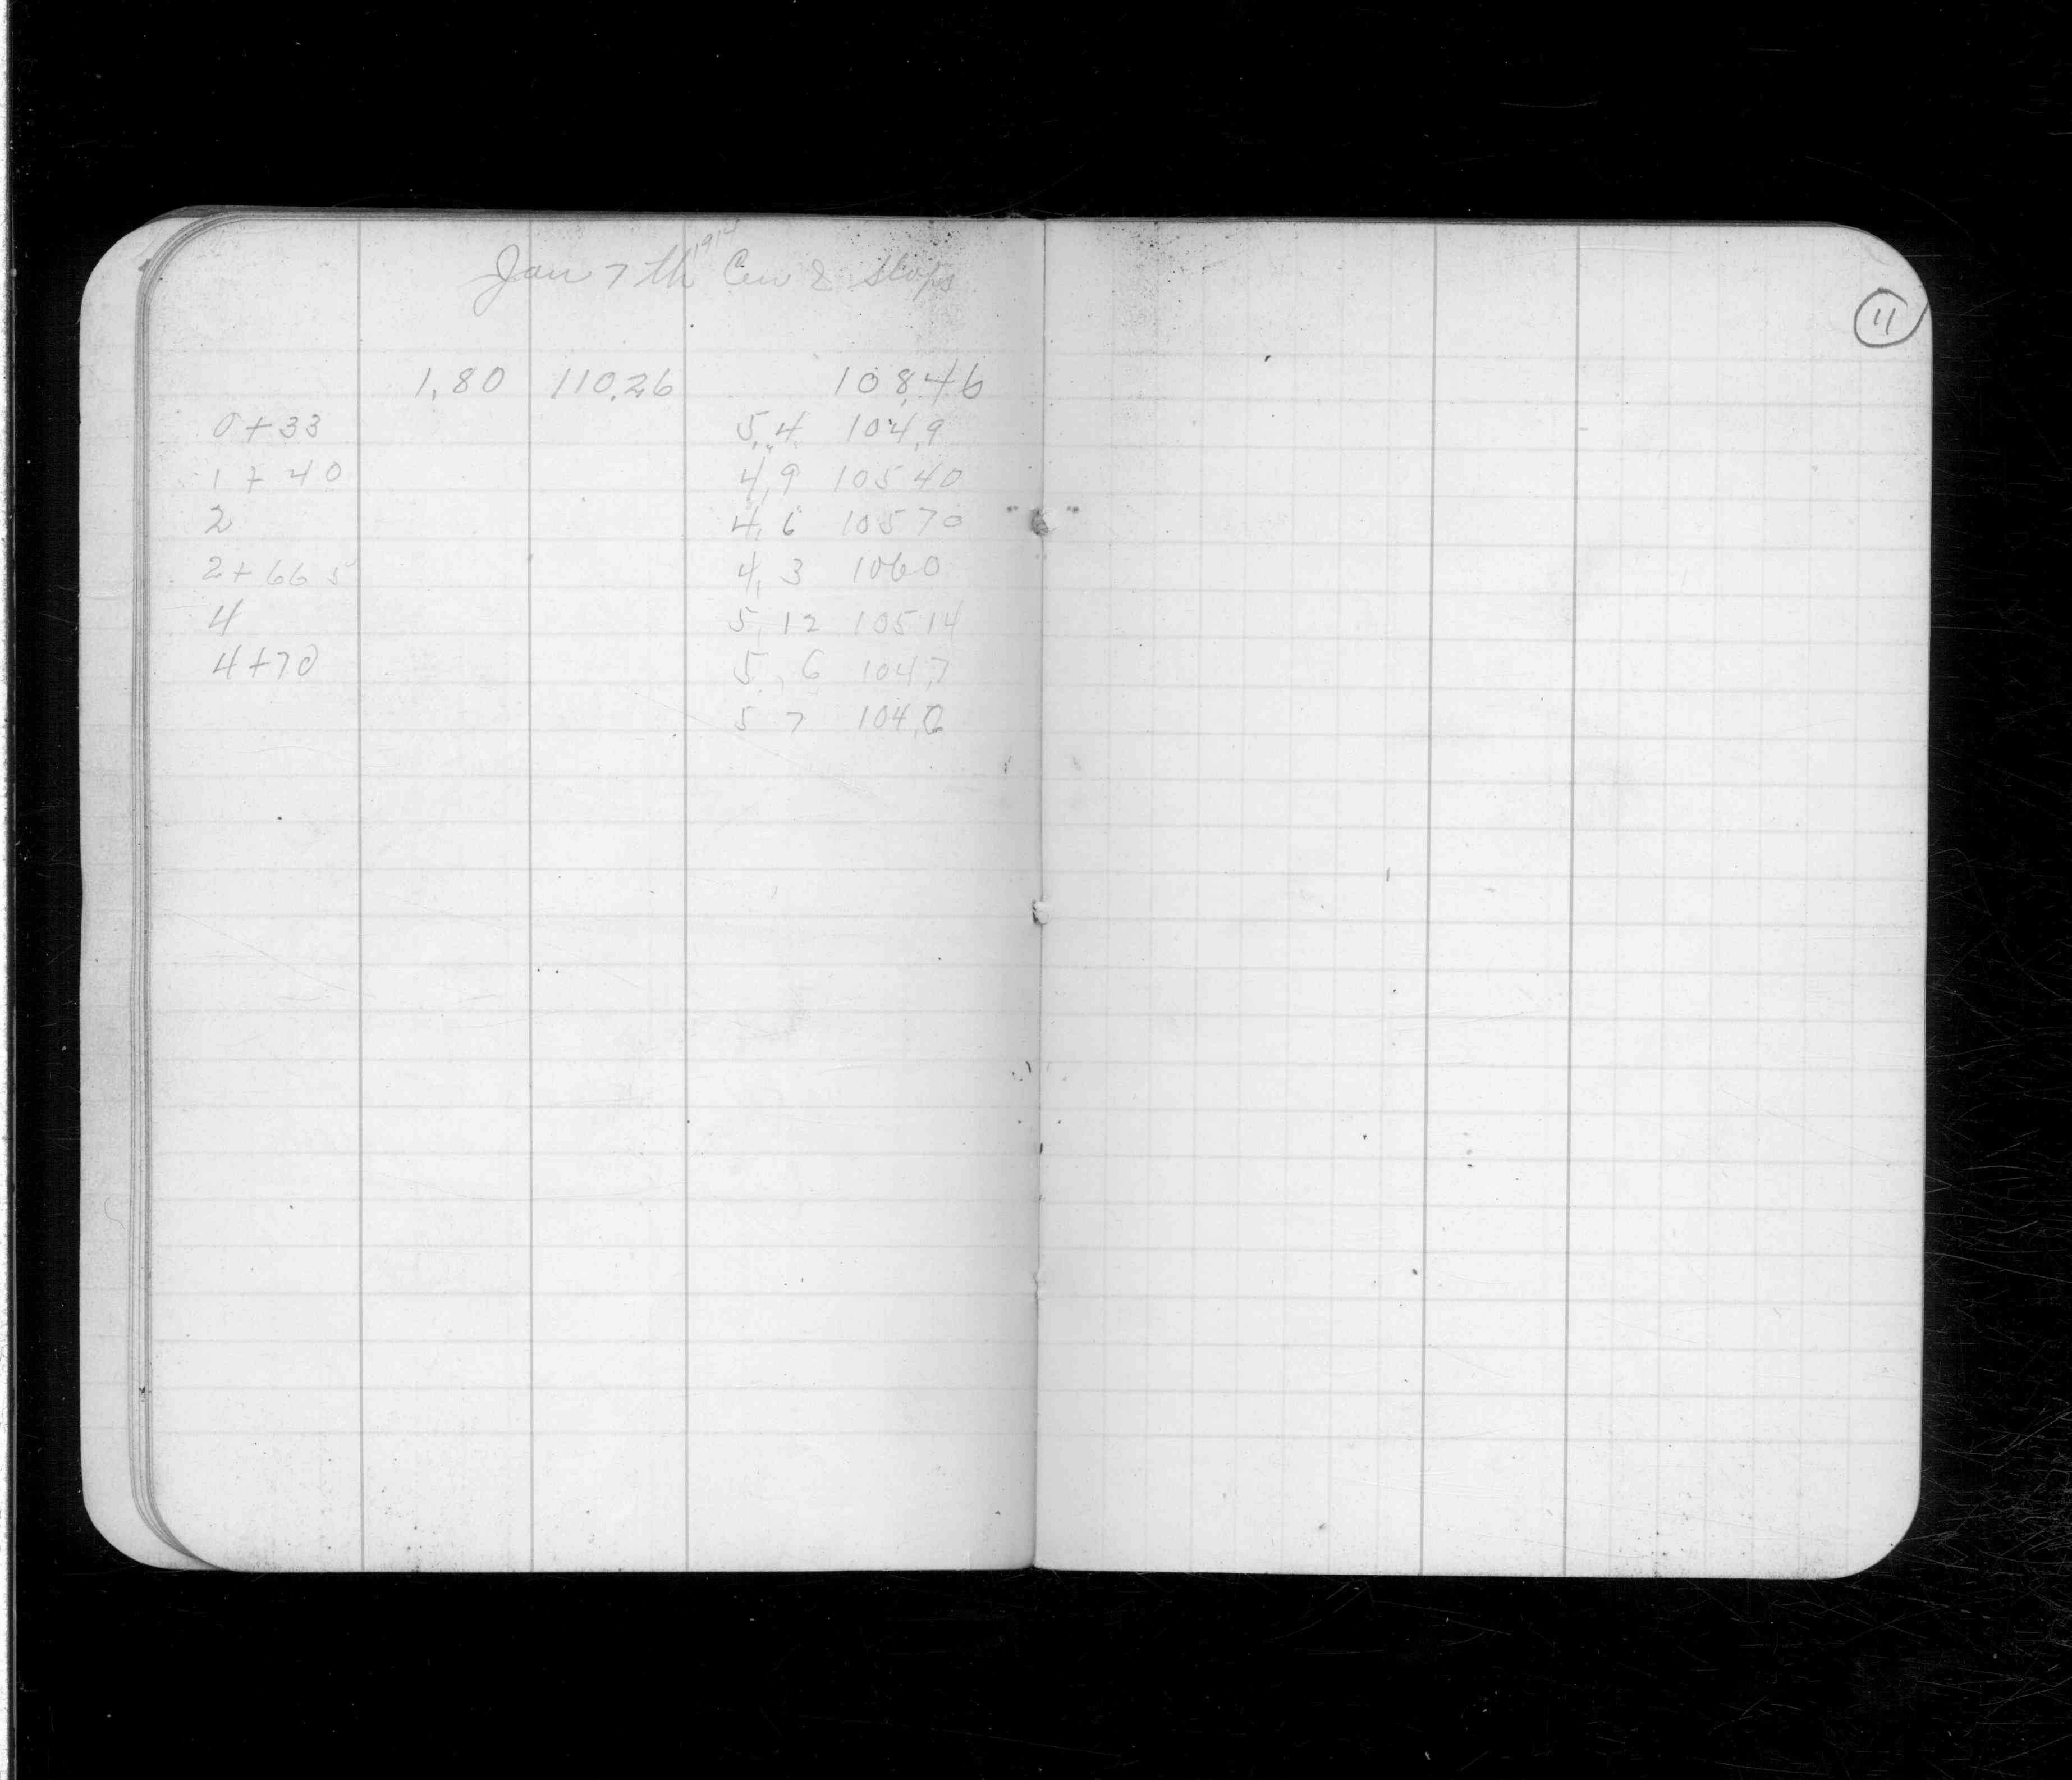 Jan 7th 1914 Cen & Slops
11
1.80 110.26 108.46
0+33 5.4 104.9
1+40 4.9 105 40
2 4.6 105 70
2+66 5 4.3 1060
4 5.12 105 14
4+70 5.6 104.7
5 7 104.6